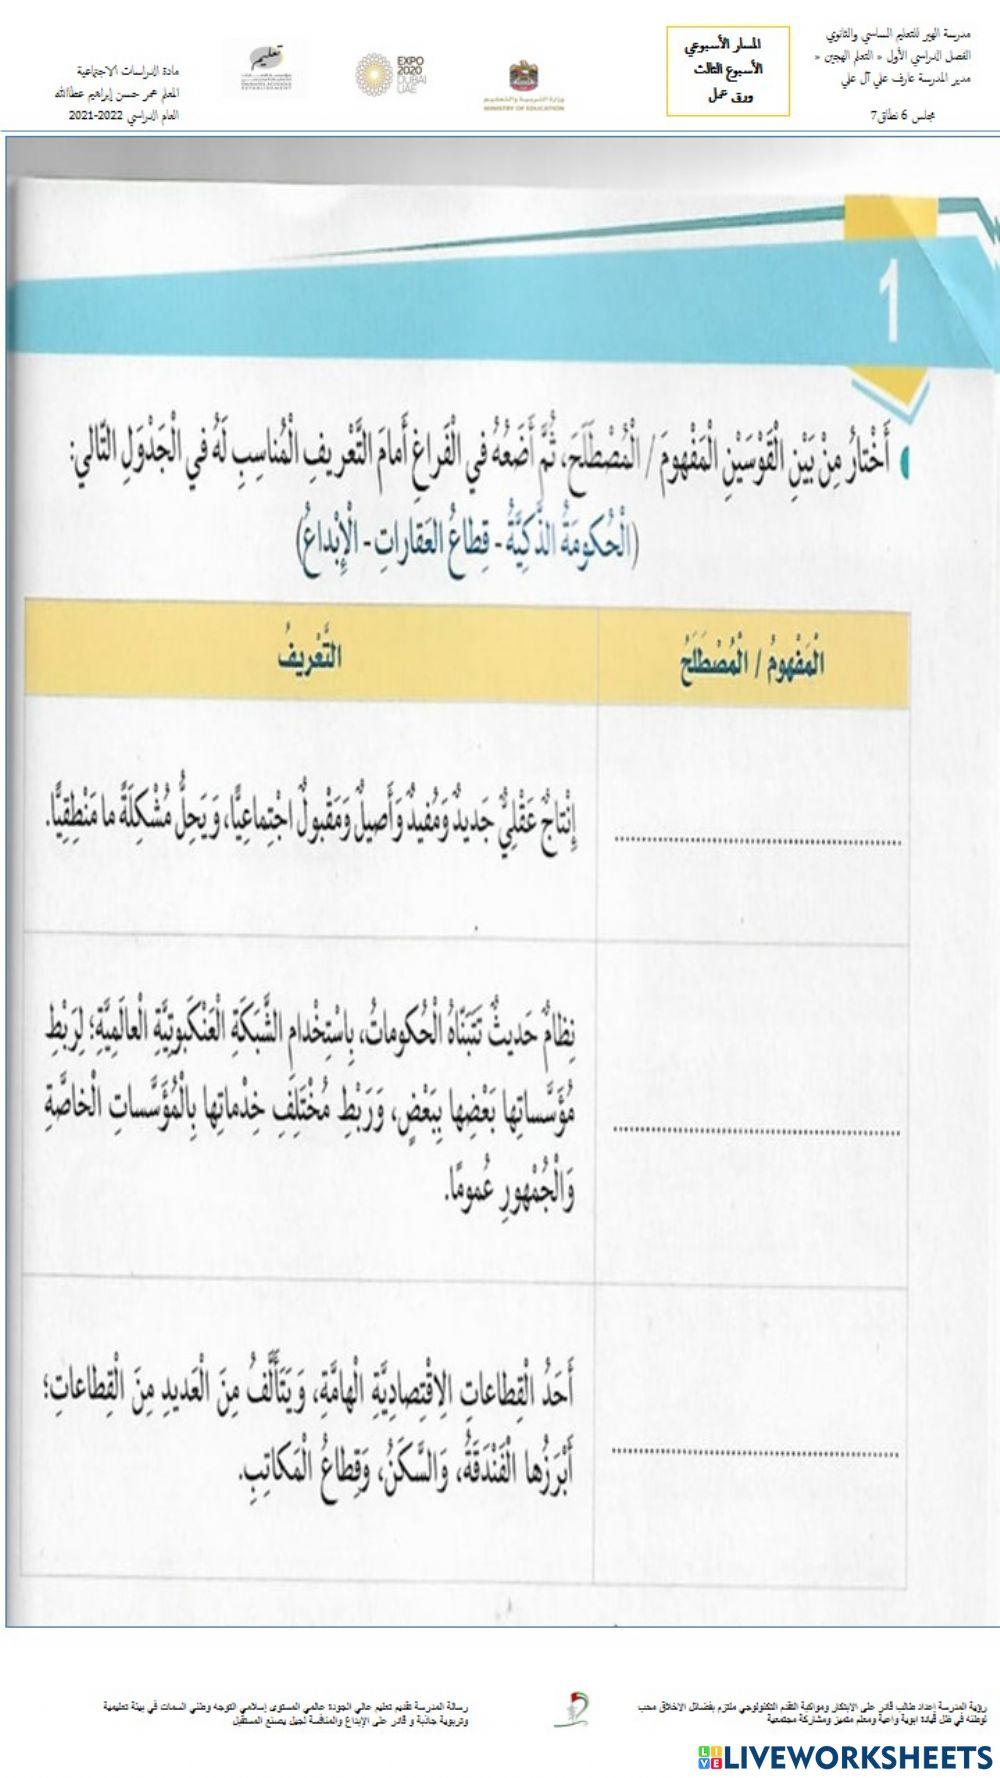 مدرسة الهير للتعليم الساسي والثانوي
الفصل الدراسي الأول « التعلم الهجين «
مدير المدرسة عارف علي آل علي
مجلس 6 نطاق7
المسار الأسبوعي
الأسبوع الثالث
ورق عمل
وزارة التربية والتعليم
MINISTRY OF EDUCATION
EXPO
2020
DUBAI
UAE
تعليم
EMIRATES SCHOOLS
ESTABLISHMENT
مادة الدراسات الاجتماعية
المعلم عمر حسن إبراهيم عطاالله
العام الدراسي 2022-2021
1
أَخْتارُ مِنْ بَيْنِ الْقَوْسَيْنِ الْمَفْهومَ / الْمُصْطَلَحَ، ثُمَّ أَضَعُهُ في الْفَراغِ أَمامَ التَّعْريفِ الْمُناسِبِ لَهُ في الْجَدْوَلِ التّالي:
(الْحُكومَةُ الذَّكِيَّةُ - قِطاعُ العَقاراتِ - الْإِبْداعُ)
الْمَفْهومُ / الْمُصْطَلَحُ
التَّعْريفُ
إِنْتاجٌ عَقْلِيٌّ جَديدٌ وَمُفيدٌ وَأَصيلٌ وَمَقْبولٌ اجْتِماعِيًّا، وَيَحِلُّ مُشْكِلَةً ما مَنْطِقِيًّا.
نِظامٌ حَديثٌ تَتَبَنّاهُ الْحُكوماتُ، بِاسْتِخْدامِ الشَّبَكَةِ الْعَنْكَبوتِيَّةِ الْعالَمِيَّةِ؛ لِرَبْطِ
مُؤَسَّساتِها بَعْضِها بِبَعْضٍ، وَرَبْطِ مُخْتَلِفِ خِدْماتِها بِالْمُؤَسَّساتِ الْخاصَّةِ
وَالْجُمْهورِ عُمومًا.
أَحَدُ الْقِطاعاتِ الِاقْتِصادِيَّةِ الْهامَّةِ، وَيَتَأَلَّفُ مِنَ الْعَديدِ مِنَ الْقِطاعاتِ؛
أَبْرَزُها الْفَنْدَقَةُ، وَالسَّكَنُ، وَقِطاعُ الْمَكاتِبِ.
رؤية المدرسة إعداد طالب قادر على الابتكار ومواكبة التقدم التكنولوجي ملتزم بفضائل الاخلاق محب
لوطنه في ظل قيادة ابوية واعية ومعلم متميز ومشاركة مجتمعية
رسالة المدرسة تقديم تعليم عالي الجودة عالمي المستوى إسلامي التوجه وطني السمات في بيئة تعليمية
وتربوية جاذبة و قادر على الإبداع والمنافسة لجيل يصنع المستقبل
LIVE LIVEWORKSHEETS